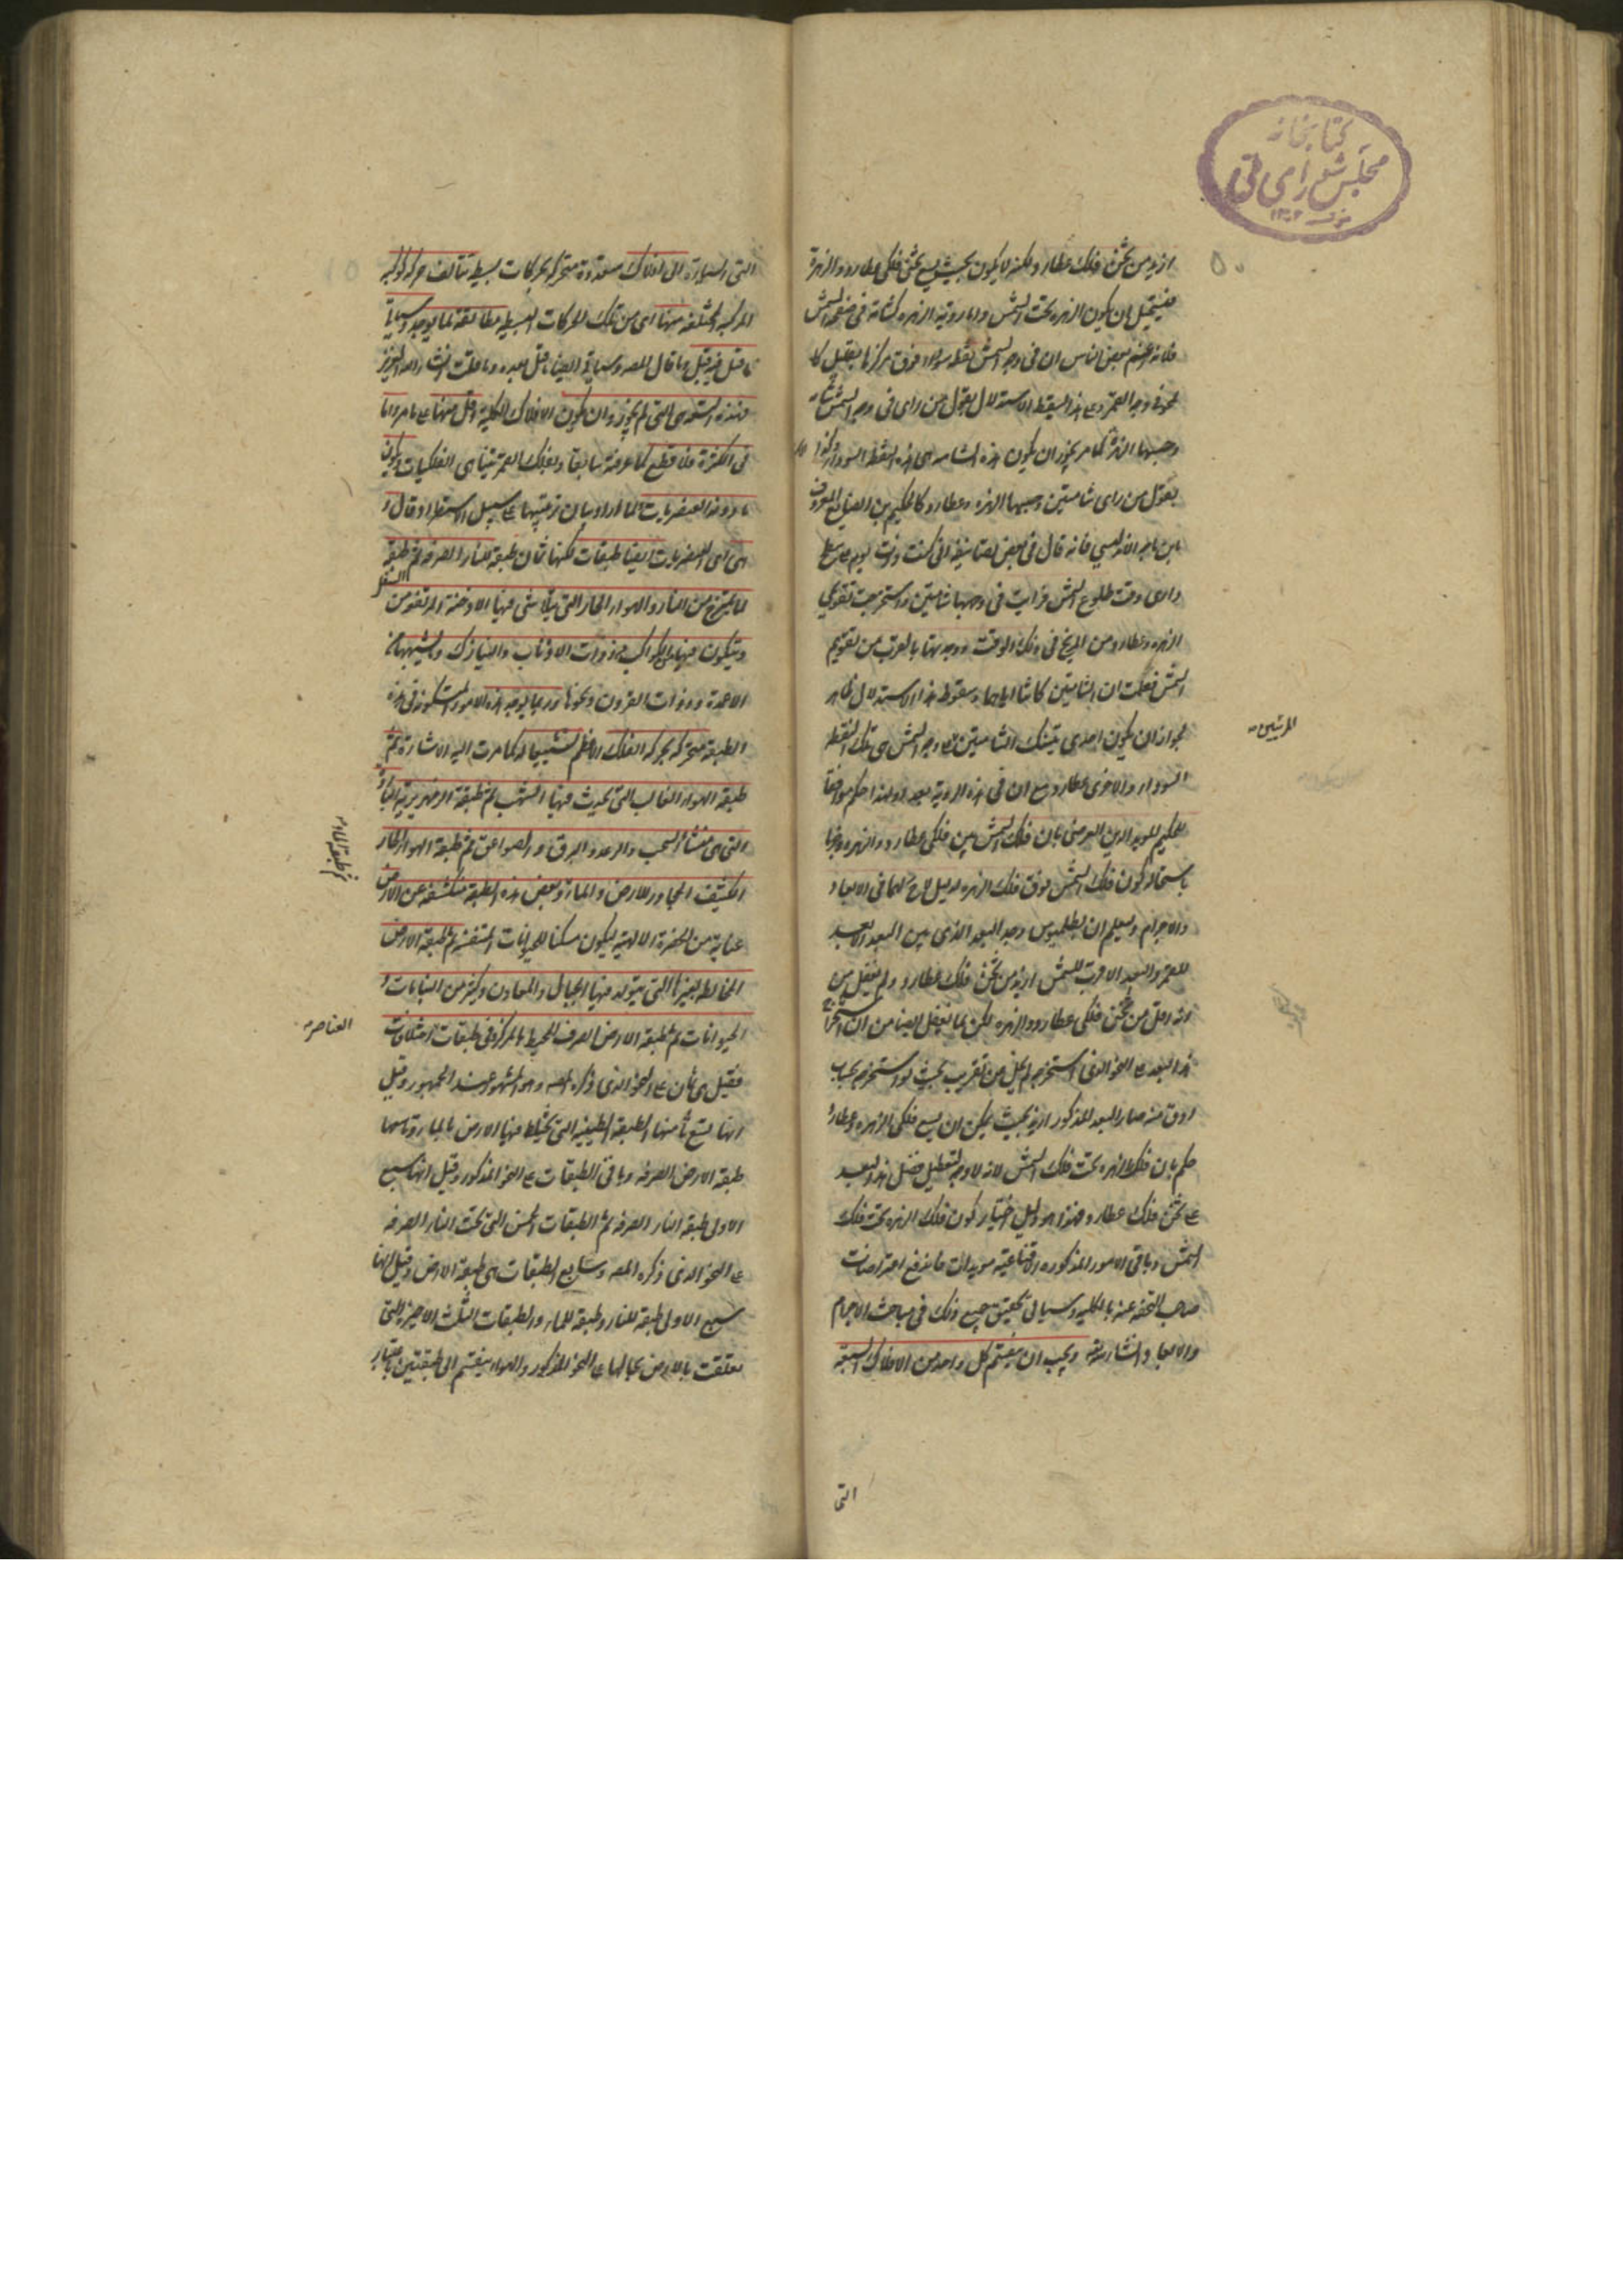 كتابخانه
مجلس شورای ملی
۱۳۰۲
ازيد من ثخن فلك عطارد ولكنه لا يكون بحيث يسع ثخن فلكى عطارد والزهرة
فيستحيل ان يكون الزهره تحت الشمس واما روية الزهره كشامة فى صفحة الشمس
فلانه زعم بعض الناس ان فى وجه الشمس نقطة سوداء فوق مركزها بقليل كا
لمحو فى وجه القمر وعلى هذا يسقط الاستدلال بقول من راى فى وجه الشمس شامة
وحسبها الزهرة كما مر لجواز ان يكون هذه الشامه هى هذه النقطة السوداء وكذا
بقول من راى شامتين وحسبهما الزهره وعطارد كالحكيم بن الصايغ المعروف
بابن باجه الاندلسى فانه قال فى بعض تصانيفه انى كنت ذات يوم على سطح
دارى وقت طلوع الشمس فرايت فى وجهها شامتين واستخرجت تقويمى
الزهره وعطارد من الزيج فى ذلك الوقت ووجدتهما بالقرب من تقويم
الشمس فعلمت ان الشامتين كانتا اياهما وسقوط هذا الاستدلال ظاهر
لجواز ان يكون احدى تينك الشامتين على وجه الشمس هى تلك النقطة
المرئيتين
السوداء والاخرى عطارد مع ان فى هذه الروية بعد ولهذا حكم موافقا
للحكيم المويد الدين العرضى بان فلك الشمس بين فلكى عطارد والزهره وجزما
باستحالة كون فلك الشمس فوق فلك الزهره لدليل لاح لهما فى الابعاد
والاجرام وليعلم ان بطلميوس وجد البعد الذى بين البعد الابعد
للقمر والبعد الاقرب للشمس ازيد من ثخن فلك عطارد ولم يغفل من
انه اقل من ثخن فلكى عطارد والزهره لكن لما لم يغفل ايضا من ان استخراج
هذا البعد على النحو الذى استخرجه لم يخل من تقريب بحيث لو استخرج بحساب
ادق منه صار البعد المذكور ازيد بحيث يمكن ان يسع فلكى الزهره وعطارد
حكم بان فلك الزهره تحت فلك الشمس لانه لا وجه لتعطيل فضل هذا البعد
على ثخن فلك عطارد وهذا هو دليل اختيار كون فلك الزهره تحت فلك
الشمس وباقى الامور المذكوره اقناعيه مويدات فاندفع اعتراضات
صاحب التحفه عنه بالكليه وسياتى تحقيق جميع ذلك فى مباحث الاجرام
والابعاد ان شاء الله ويجب ان ينقسم كل واحد من الافلاك السبعه
التى
التى للسيارة الى افلاك متعددة متحركة بحركات بسيطه تتالف حركاتها
المركبه المختلفه منها اى من تلك الحركات البسيطه مطابقة لما يوجد وسياتى
ما قيل فيه قبل ما قال المصه وسياتى ايضا ما قيل بعده وما قلت ان شاء الله العزيز
فهذه التسعة هى التى لم يجوزوا ان يكون الافلاك الكلية اقل منها على ما مر واما
فى الكثرة فلا قطع كما عرفته سابقا وبفلك القمر يتناهى الفلكيات ويكون
ما دونه العنصريات لما اراد بيان ترتيبها على سبيل الاستطراد قال و
هى اى العنصريات ايضا طبقات لكنها ثمان طبقة للنار الصرفه ثم طبقة
لما يمتزج من النار والهواء الحار التى يتلاشى فيها الادخنة المرتفعة من
السفل
ويتكون فيها الكواكب ذوات الاذناب والنيازك وما يشبهها من
الاعمدة وذوات القرون ونحوها وربما يوجد هذه الامور المتكونه فى هذه
الطبقة متحركه بحركة الفلك الاعظم تشييعا له كما مرت اليه الاشارة ثم
طبقة الهواء الغالب التى يحدث فيها الشهب ثم طبقة الزمهريرية الباردة
التى هى منشا السحب والرعد والبرق والصواعق ثم طبقة الهواء الحار
ثم طبقة الماء
الكثيف المجاور للارض والماء وبعض هذه الطبقة منكشفه عن الارض
عناية من الحضرة الالهية ليكون مسكنا للحيوانات المتنفسه ثم طبقة الارض
المخالطه بغيرها التى يتولد فيها الجبال والمعادن وكثير من النباتات و
الحيوانات ثم طبقة الارض الصرف المحيط بالمركز وفى طبقات اختلافات
العناصر
فقيل هى ثمان على النحو الذى ذكره المصه وهو المشهور عند الجمهور وقيل
انها تسع ثامنها الطبقة الطينيه التى يختلط فيها الارض بالماء وتاسعها
طبقة الارض الصرفه وباقى الطبقات على النحو المذكور وقيل انها سبع
الاولى طبقة النار الصرفه ثم الطبقات الخمس التى تحت النار الصرفه
على النحو الذى ذكره المصه وسابع الطبقات هى طبقة الارض وقيل انها
سبع الاولى طبقة للنار وطبقة للماء والطبقات الثلث الاخيرة التى
تعلقت بالارض بحالها على النحو المذكور والهواء ينقسم الى طبقتين باعتبار